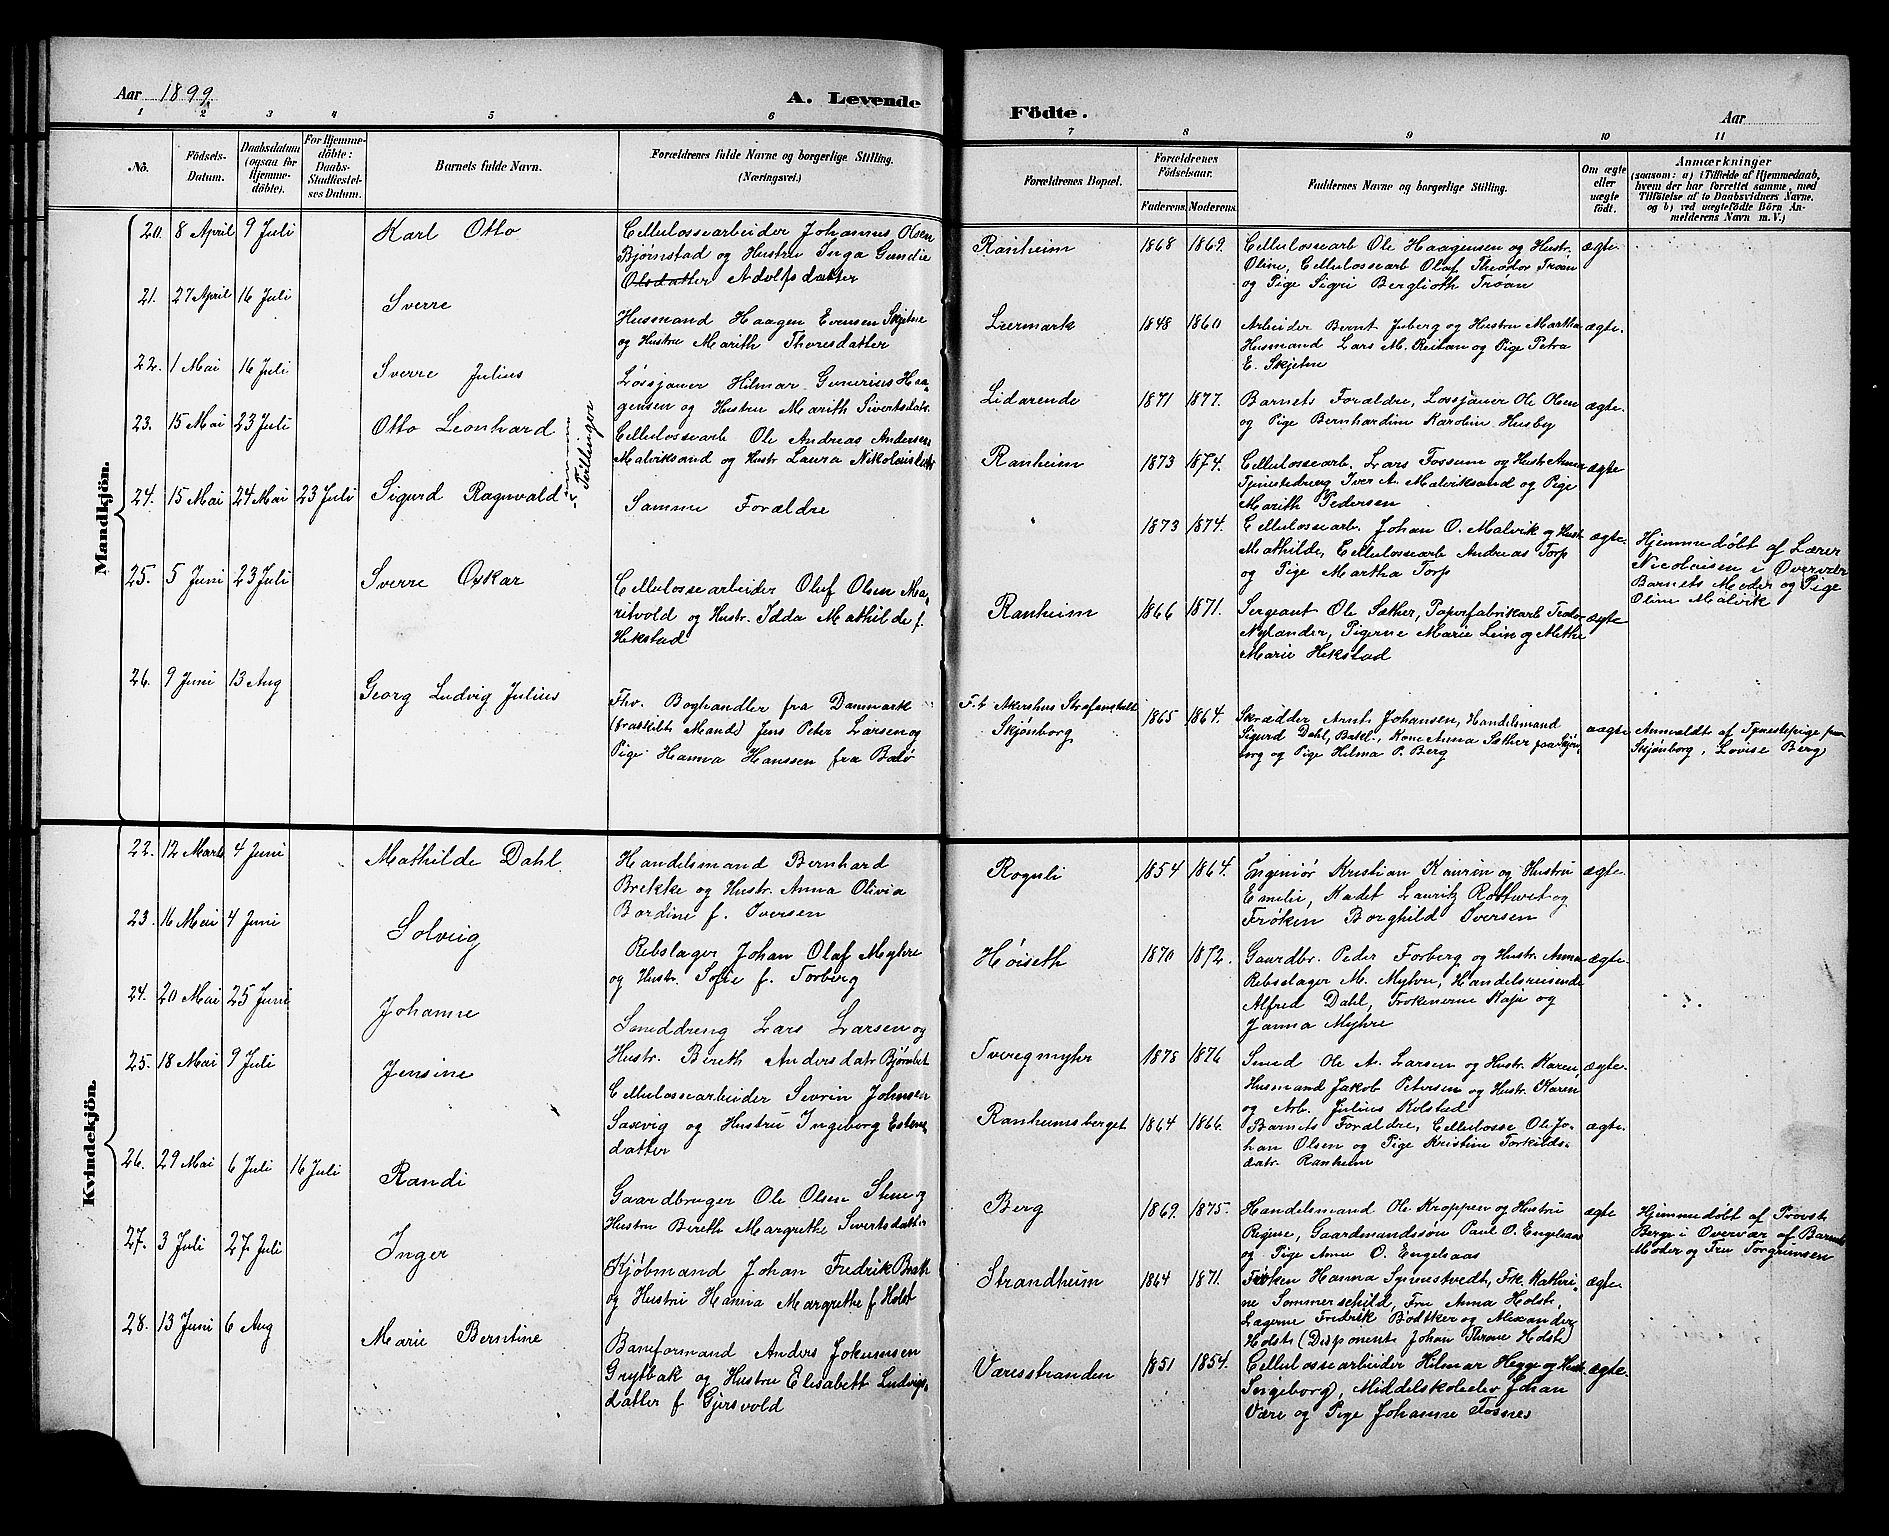 Aar 1899.
A. Levende
Födte.
Aar
1 2 3 4 5 6
7 8 9 10 11
No.
Födsels-
Datum.
Daabsdatum
(ogsaa for
Hjemme-
döbte).
For Hjemme-
döbte:
Daabs-
Stadfæstel-
ses Datum.
Barnets fulde Navn.
Forældrenes fulde Navne og borgerlige Stilling.
(Næringsvei.)
Forældrenes Bopæl.
Forældrenes
Födselsaar.
Faderens. Moderens.
Faddernes Navne og borgerlige Stilling.
Om ægte
eller
uægte
födt.
Anmærkninger
(saasom: a) i Tilfælde af Hjemmedaab,
hvem der har forrettet samme, med
Tilföielse af to Daabsvidners Navne.
og b) ved uægtefödte Börn An-
melderens Navn m. V.)
Mandkjön.
20. 8 April 9 Juli Karl Otto
Cellulossearbeider Johannes Olsen
Bjørnstad og Hustru Inga Gundie
Olsdatter Adolfsdatter
Ranheim 1868 1869.
Cellulossearb Ole Haagensen og Hustr.
Oline, Cellulossearb Olaf Theodor Trøan
og Pige Sigri Berglioth Trøan
ægte
21. 27 April 16 Juli Sverre
Husmand Haagen Evensen Skjetne
og Hustru Marith Thoresdatter
Leermark 1848 1860
Arbeider Bernt Juberg og Hustru Martha
Husmand Lars M. Reitan og Pige Petra
E. Skjetne
ægte.
22. 1 Mai 16 Juli Sverre Julius
Løssjauer Hilmar Gunerius Haa-
gensen og Hustru Marith Sivertsdatr.
Lidarende 1871 1877.
Barnets Forældre, Løssjauer Ole Olsen
og Pige Bernhardine Karoline Husby
ægte.
23. 15 Mai 23 Juli Otto Leonhard
Tvillinger
Cellulossearb Ole Andreas Andersen
Malviksand og Hustr Laura Nikolaisdatr
Ranheim 1873 1874.
Cellulossearb. Lars Fossum og Hustr Anna
Tjenstedreng Iver A. Malviksand og Pige
Marith Pedersen
ægte
24. 15 Mai 24 Mai 23 Juli Sigurd Ragnvald
Samme Forældre
1873 1874.
Cellulossearb. Johan O. Malvik og Hust
Mathilde, Cellulossearb Andreas Torp
og Pige Martha Torp
ægte.
Hjemmedøbt af Lærer
Nicolaisen i Overvær
Barnets Moder og Pige
Oline Malvik
25. 5 Juni 23 Juli Sverre Oskar
Cellulossearbeider Oluf Olsen Ma-
ritvold og Hustr. Idda Mathilde f.
Hekstad
Ranheim 1866 1871.
Sergeant Ole Sæther, Papirfabrikarb Teodor
Nylander, Pigerne Marie Lein og Methe
Marie Hekstad
ægte
26. 9 Juni 13 Aug Georg Ludvig Julius
Fhv. Boghandler fra Danmark
(fraskilt Mand) Jens Peter Larsen og
Pige Hanna Hanssen fra Bodø
F. t Akershus Strafanstalt
Skjønborg
1865 1864.
Skrædder Arnt Johansen, Handelsmand
Sigurd Dahl, Bakl., Kone Anna Sæther paa Skjøn-
borg og Pige Hilma P. Berg
uægte
Anmeldt af Tjenestepige paa
Skjønborg, Lovise Berg
Kvindekjön.
22. 12 Marts 4 Juni Mathilde Dahl
Handelsmand Bernhard
Brekke og Hustr. Anna Olivia
Bordine f. Iversen
Roguli 1854 1864.
Ingeniør Kristian Kaurin og Hustru
Emilie, Kadet Lauritz Rottvet og
Frøken Borghild Iversen
ægte.
23. 16 Mai 4 Juni Solveig
Rebslager Johan Olaf Myhre
og Hustr. Sofie f. Forberg
Høiseth 1870 1872.
Gaardbr. Peder Forberg og Hustr. Anna
Rebslager M. Myhre, Handelsreisende
Alfred Dahl, Frøkenerne Kaja og
Janna Myhre
ægte.
24. 20 Mai 25 Juni Johanne
Smeddreng Lars Larsen og
Hustr. Bereth Andersdatr Bjørnbet
Tveregmyhr 1878 1876
Smed Ole A. Larsen og Hustr Karen,
Husmand Jakob Petersen og Hustr. Karen
og Arb. Julius Kolstad
ægte.
25. 18 Mai 9 Juli Jensine
Cellulossearbeider Sevrin Johnsen
Saxvig og Hustru Ingeborg Estens
datter
Ranheimsberget 1864 1866.
Barnets Forældre, Cellulosse Ole Jo-
han Olsen og Pige Kristine Torkilds-
datr. Ranheim
ægte.
26. 29 Mai 6 Juli 16 Juli Randi
Gaardbruger Ole Olsen Stene og
Hustru Bereth Margrethe Sivertsdatter
Berg 1869. 1875.
Handelsmand Ole Kroppen og Hustru
Regine, Gaardmandssøn Paul O. Engelsaas
og Pige Anne O. Engelsaas
ægte
Hjemmedøbt af Provst
Berge i Overvær af Barnets
Moder og Fru Torgrimsen
27. 3 Juli 27. Juli Inger
Kjøbmand Johan Fredrik Brath
og Hustru Hanna Margrethe f Holst
Strandheim 1864 1871.
Frøken Hanna Synnestvedt, Frk. Kathri-
ne Sommerschild, Fru Anna Holst,
Lægerne Fredrik Bødtker og Alexander
Holst (Disponent Johan Throne Holst)
ægte
28. 13 Juni 6 Aug Marie Berntine
Baneformand Anders Jokumsen
Grytbak og Hustru Elisabett Ludvigs-
datter f Gjersvold
Væresstranden 1851 1854.
Cellulossearbeider Hilmar Hegge og Hustr.
Ingeborg, Middelskoleelev Johan
Være og Pige Johanne Fosnes
ægte.